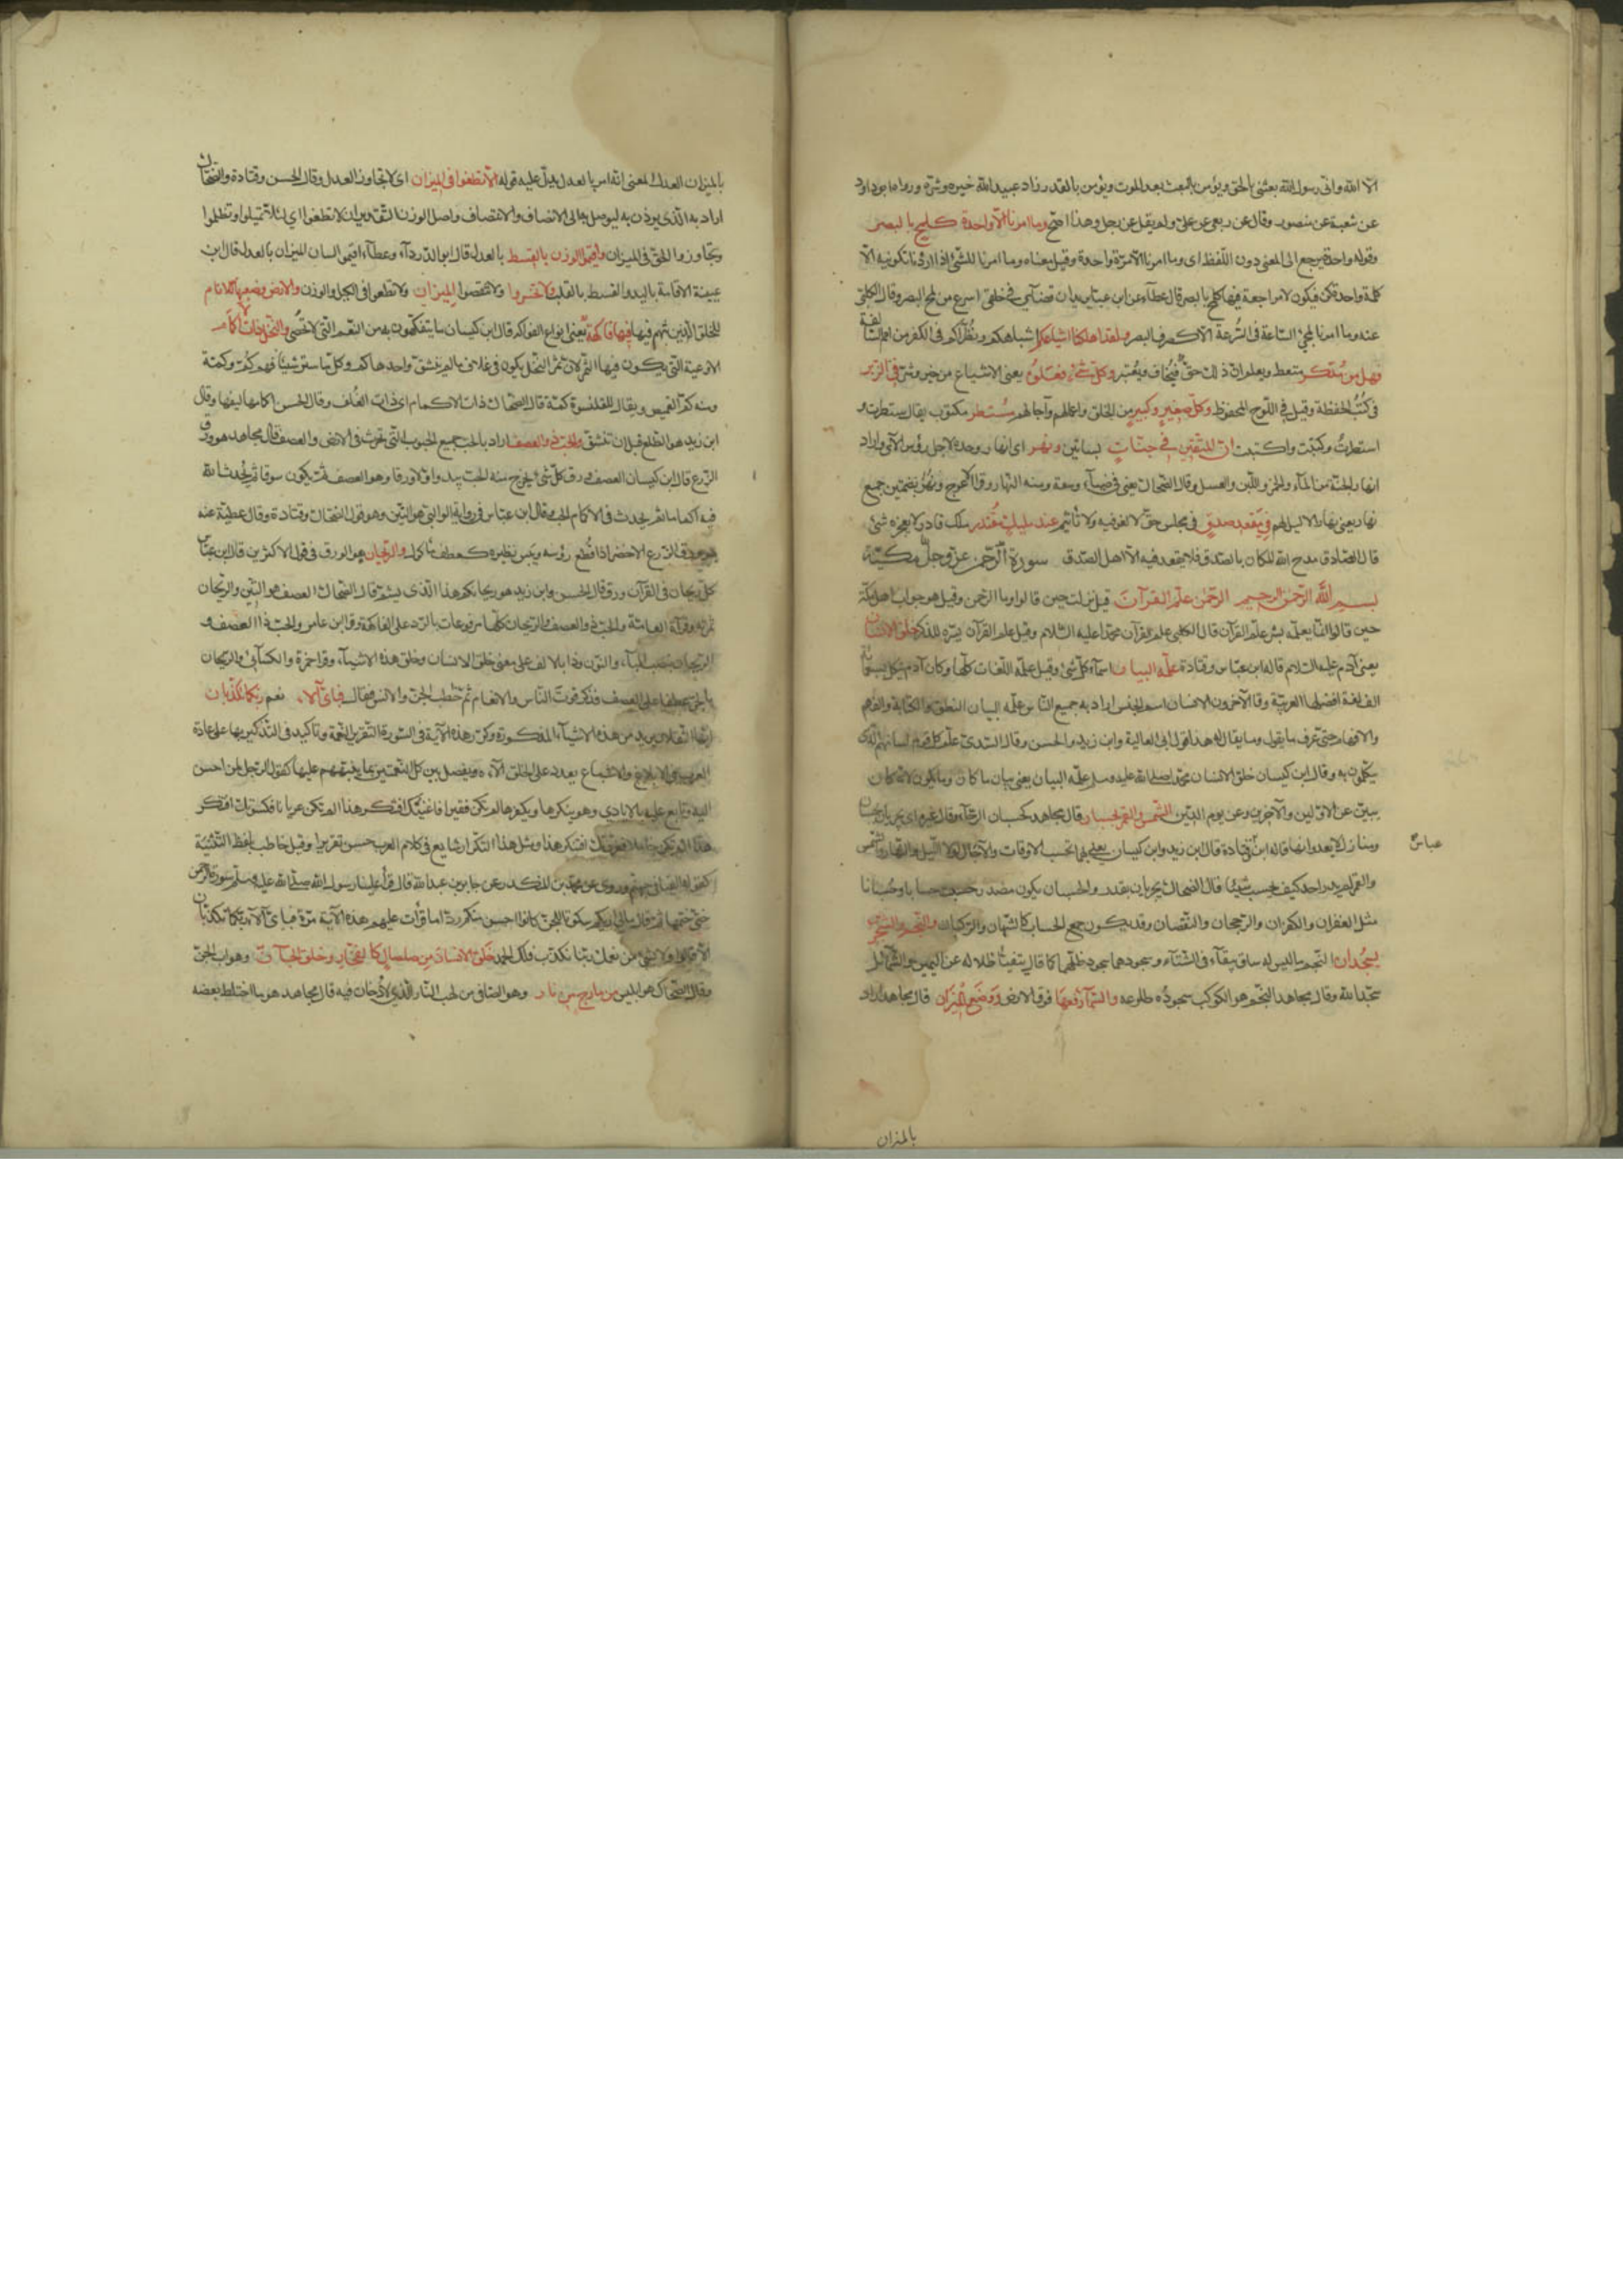 الا الله وانى رسول الله بعثنى بالحق ويؤمن بالبعث بعد الموت ويؤمن بالقدر زاد عبيد الله خيره وشره ورواه ابو داود
عن شعبة عن منصور وقال عن ربعى عن على ولم يقل عن رجل وهذا اصح وما امرنا الا واحدة كلمح بالبصر
وقوله واحدة يرجع الى المعنى دون اللفظ اى وما امرنا الا مرة واحدة وقيل معناه وما امرنا للشئ اذا اردنا تكوينه الا
كلمة واحدة كن فيكون لا مراجعة فيها كلمح بالبصر قال عطاء عن ابن عباس يريد ان قضآئى فى خلقى اسرع من لمح البصر وقال الكلبى
عنه وما امرنا لمجئ الساعة فى السرعة الا كطرف البصر ولقد اهلكنا اشياعكم اشباهكم ونظرآءكم فى الكفر من الامم السالفة
فهل من مدكر متعظ يعلم ان ذلك حق فيخاف ويعتبر وكل شئ فعلوه يعنى الاشياع من خير وشر فى الزبر
فى كتب الحفظة وقيل فى اللوح المحفوظ وكل صغير وكبير من الخلق واعمالهم وآجالهم مستطر مكتوب يقال سطرت و
استطرت وكتبت واكتتبت ان المتقين فى جنات بساتين ونهر اى انهار ووحده لاجل رؤس الآى واراد
انهار الجنة من المآء والخمر واللبن والعسل وقال الضحاك يعنى فى ضيآء وسعة ومنه النهار وقرا الاعرج ونهر بضمتين جمع
نهار يعنى نهارا لا ليل لهم فى مقعد صدق فى مجلس حق لا لغو فيه ولا تأثيم عند مليك مقتدر ملك قادر لا يعجزه شئ
قال الصادق مدح الله المكان بالصدق فلا يقعد فيه الا اهل الصدق سورة الرحمن عز وجل مكية
بسم الله الرحمن الرحيم الرحمن علم القرآن قيل نزلت حين قالوا وما الرحمن وقيل هو جواب لاهل مكة
حين قالوا انما يعلمه بشر علم القرآن قال الكلبى علم القرآن محمدا عليه السلام وقيل علم القرآن يسره للذكر خلق الانسان
يعنى آدم عليه السلام قاله ابن عباس وقتادة علمه البيان اسمآء كل شئ وقيل علمه اللغات كلها وكان آدم يتكلم بسبعمائة
الف لغة افضلها العربية وقال الآخرون الانسان اسم الجنس اراد به جميع الناس علمه البيان النطق والكتابة والفهم
والافهام حتى عرف ما يقول وما يقال له هذا قول ابى العالية وابن زيد والحسن وقال السدى علم كل قوم لسانهم الذى
يتكلمون به وقال ابن كيسان خلق الانسان محمدا صلى الله عليه وسلم علمه البيان يعنى بيان ما كان وما يكون لانه كان
يبين عن الاولين والآخرين وعن يوم الدين الشمس والقمر بحسبان قال مجاهد كحسبان الرحآء وقال غيره اى يجريان بحسبان
ومنازل لا يعدوانها قاله ابن عباس وقتادة قال ابن زيد وابن كيسان يعنى بهما تحسب الاوقات والآجال لولا الليل والنهار والشمس
والقمر لم يدر احد كيف يحسب شيئا قال الضحاك يجريان بقدر والحسبان يكون مصدر حسبت حسابا وحسبانا
مثل الغفران والكفران والرجحان والنقصان وقد يكون جمع الحساب كالشهبان والركبان والنجم والشجر
يسجدان النجم ما ليس له ساق والشجر ما له ساق يبقى فى الشتآء وسجودهما سجود ظلهما كما قال يتفيأ ظلاله عن اليمين والشمآئل
سجدا لله وقال مجاهد النجم هو الكوكب سجوده طلوعه والسمآء رفعها فوق الارض ووضع الميزان قال مجاهد اراد
عباس
بالميزان
بالميزان العدل المعنى انه امر بالعدل يدل عليه قوله الا تطغوا فى الميزان اى لا تجاوزوا العدل وقال الحسن وقتادة والضحاك
اراد به الذى يوزن به ليوصل به الى الانصاف والانتصاف واصل الوزن التقدير ان لا تطغوا اى لئلا تميلوا وتظلموا
وتجاوزوا الحق فى الميزان واقيموا الوزن بالقسط بالعدل قال ابو الدردآء وعطآء اقيموا لسان الميزان بالعدل قال ابن
عيينة الاقامة باليد والقسط بالقلب ولا تخسروا ولا تنقصوا الميزان ولا تطففوا فى الكيل والوزن والارض وضعها للانام
للخلق الذين بثهم فيها فيها فاكهة يعنى انواع الفواكه قال ابن كيسان ما يتفكهون به من النعم التى لا تحصى والنخل ذات الاكمام
الاوعية التى يكون فيها الثمر لان ثمر النخل يكون فى غلاف ما لم ينشق واحدها كم وكل ما ستر شيئا فهو كم وكمة
ومنه كم القميص ويقال للقلنسوة كمة قال الضحاك ذات الاكمام اى ذات الغلف وقال الحسن اكمامها ليفها وقال
ابن زيد هو الطلع قبل ان تنشق والحب ذو العصف اراد بالحب جميع الحبوب التى تحرث فى الارض والعصف قال مجاهد هو ورق
الزرع قال ابن كيسان العصف ورق كل شئ يخرج منه الحب يبدو اولا ورقا وهو العصف ثم يكون سوقا ثم يحدث الله
فيه اكماما ثم يحدث فى الاكمام الحب وقال ابن عباس فى رواية الوالبى هو التبن وهو قول الضحاك وقتادة وقال عطية عنه
هو ورق الزرع الاخضر اذا قطع رؤسه ويبس نظيره كعصف مأكول والريحان هو الورق فى قول الاكثرين قال ابن عباس
كل ريحان فى القرآن ورق قال الحسن وابن زيد هو ريحانكم هذا الذى يشم قال الضحاك العصف هو التبن والريحان
ثمرته وقرآءة العامة والحب ذو العصف والريحان كلها مرفوعات بالرد على الفاكهة وقرا ابن عامر والحب ذا العصف و
الريحان بنصب البآء والنون وذا بالالف على معنى خلق الانسان وخلق هذه الاشيآء وقرا حمزة والكسآئى والريحان
بالجر عطفا على العصف فذكر قوت الناس والانعام ثم خاطب الجن والانس فقال فباى آلاء نعم ربكما تكذبان
ايها الثقلان يريد من هذه الاشيآء المذكورة وكرر هذه الآية فى السورة تقريرا للنعمة وتاكيدا فى التذكير بها على عادة
العرب فى الابلاغ والاشباع يعدد على الخلق الآءه ويفصل بين كل نعمتين بما ينبههم عليها كقول الرجل لمن احسن
اليه وتابع عليه بالايادى وهو ينكرها ويكفرها الم تكن فقيرا فاغنيتك افتنكر هذا الم تكن عريانا فكسوتك افتنكر
هذا الم تكن خاملا فعززتك افتنكر هذا ومثل هذا التكرار شايع فى كلام العرب حسن تقريرا وقيل خاطب بلفظ التثنية
كقوله القيا فى جهنم وروى عن محمد بن المنكدر عن جابر بن عبد الله قال قرأ علينا رسول الله صلى الله عليه وسلم سورة الرحمن
حتى ختمها ثم قال ما لى اراكم سكوتا للجن كانوا احسن منكم ردا ما قرأت عليهم هذه الآية مرة فباى آلآء ربكما تكذبان
الا قالوا ولا بشئ من نعمك ربنا نكذب فلك الحمد خلق الانسان من صلصال كالفخار وخلق الجآن وهو اب الجن
وقال الضحاك هو ابليس من مارج من نار وهو الصافى من لهب النار الذى لا دخان فيه قال مجاهد هو ما اختلط بعضه